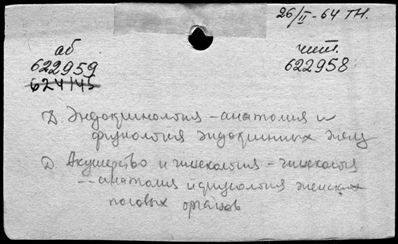 26/II-64 ТН.
аб
622959
624145
чит.
622958
Д. Эндокринология - анатомия и
физиология эндокринных желез
Д. Акушерство и гинекология - гинекология
-- анатомия и физиология женских
половых органов